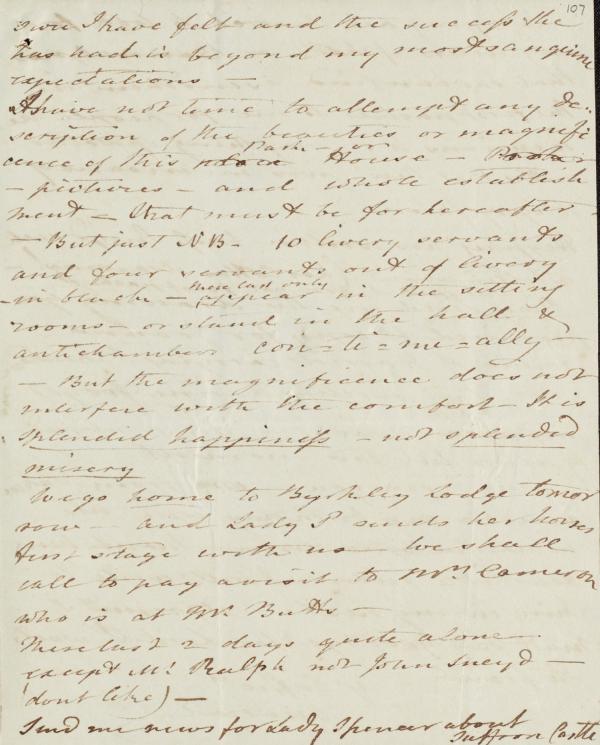 107
own I have felt and the success she
has had is beyond my most sanguine
expectations —
I have not time to attempt any de-
scription of the beauties or magnifi
cence of this place Park - or House -
- pictures - and whole establish
ment - that must be for hereafter -
- But just NB - 10 livery servants
and four servants out of livery
- in black - these last only appear in the sitting
rooms - or stand in the hall &
antichamber con=ti=nu=ally -
- But the magnificence does not
interfere with the comfort - It is
splendid happiness - not splendid
misery
We go home to Byrkley Lodge tomor
row - and Lady P sends her horses
first stage with us - We shall
call to pay a visit to Mrs Cameron
who is at Mr Butts -
These last 2 days quite alone
except Mr Ralph not John Sneyd -
dont like) -
Send me news for Lady Spencer about
Saffron Castle